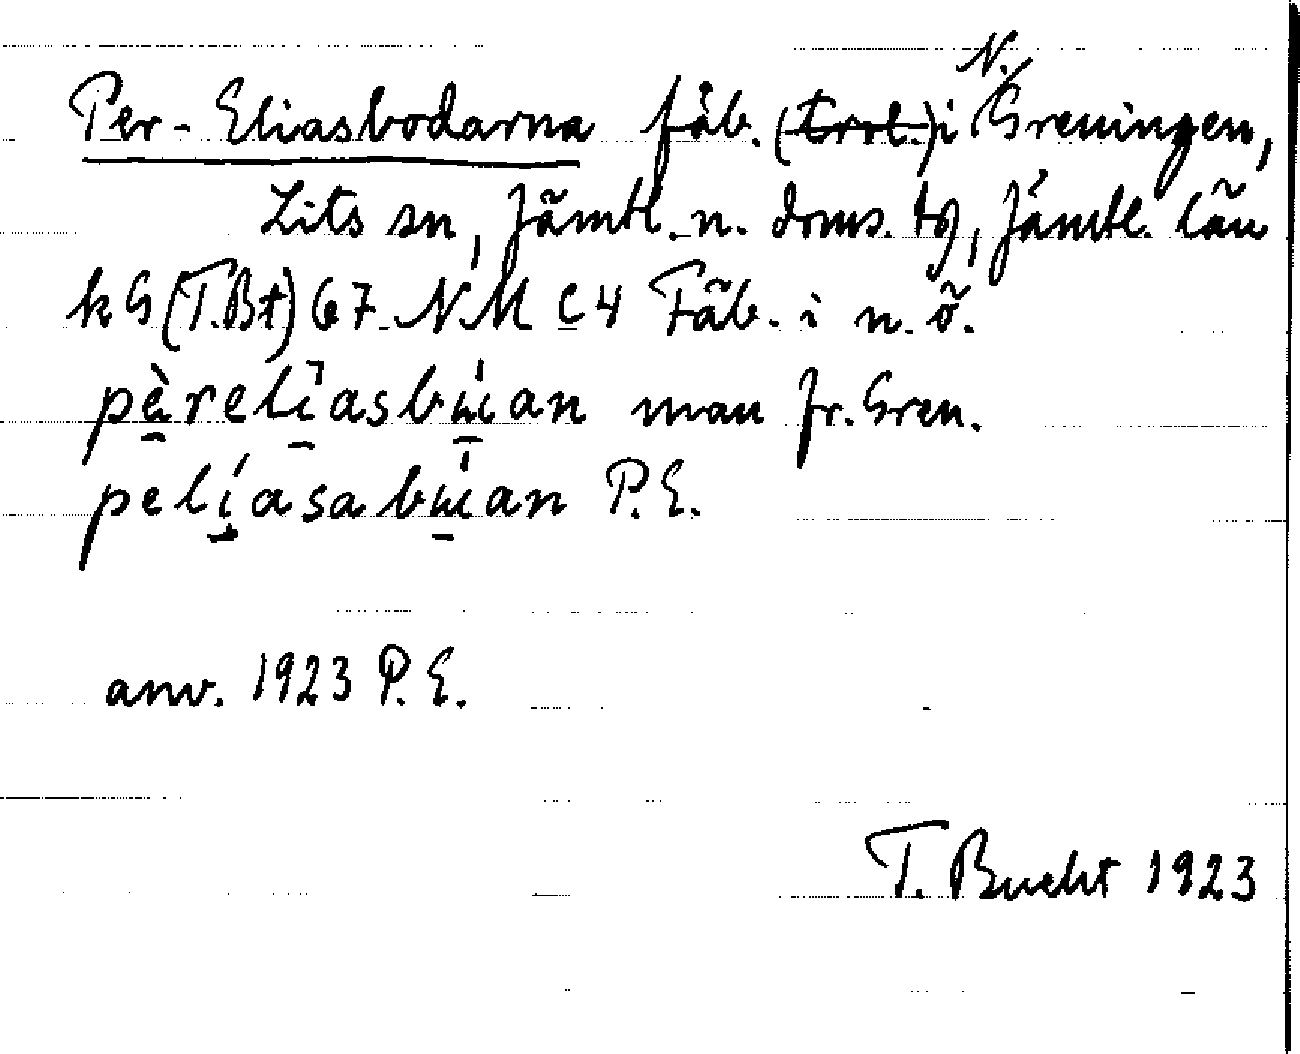 Per-Eliasbodarna fäb. (Trol.) i N. Greningen,
Lits sn, Jämtl. n. doms. tg, Jämtl. län
k G (T.Bt) 67 NM C4 Fäb. i n. ö.
man fr. Gren.
P.E.
anv. 1923 P.E.
T. Bucht 1923